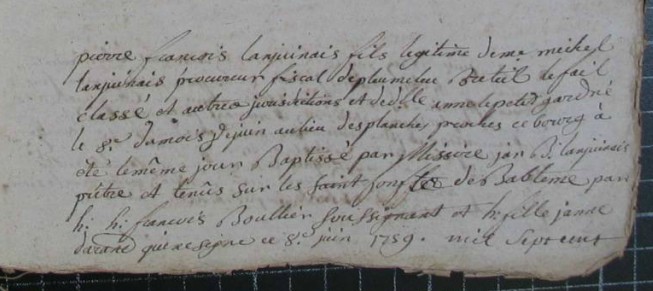 pierre francois lanjuinais fils legitime de me michel
lanjuinais procureur fiscal de plumelue Breteil le fail
classé et autres jurisditions et de d.lle anne le petit gardré
le 8.e du mois de juin au lieu des planches proches ce bourg à
été le même jour Baptissé par Missire jan B. lanjuinais
prêtre et tenûs sur les saint de Babteme par
h: h: francois Boullier soussignant et h: fille janne
qui ne signe ce 8.e juin 1759. mil sept cent